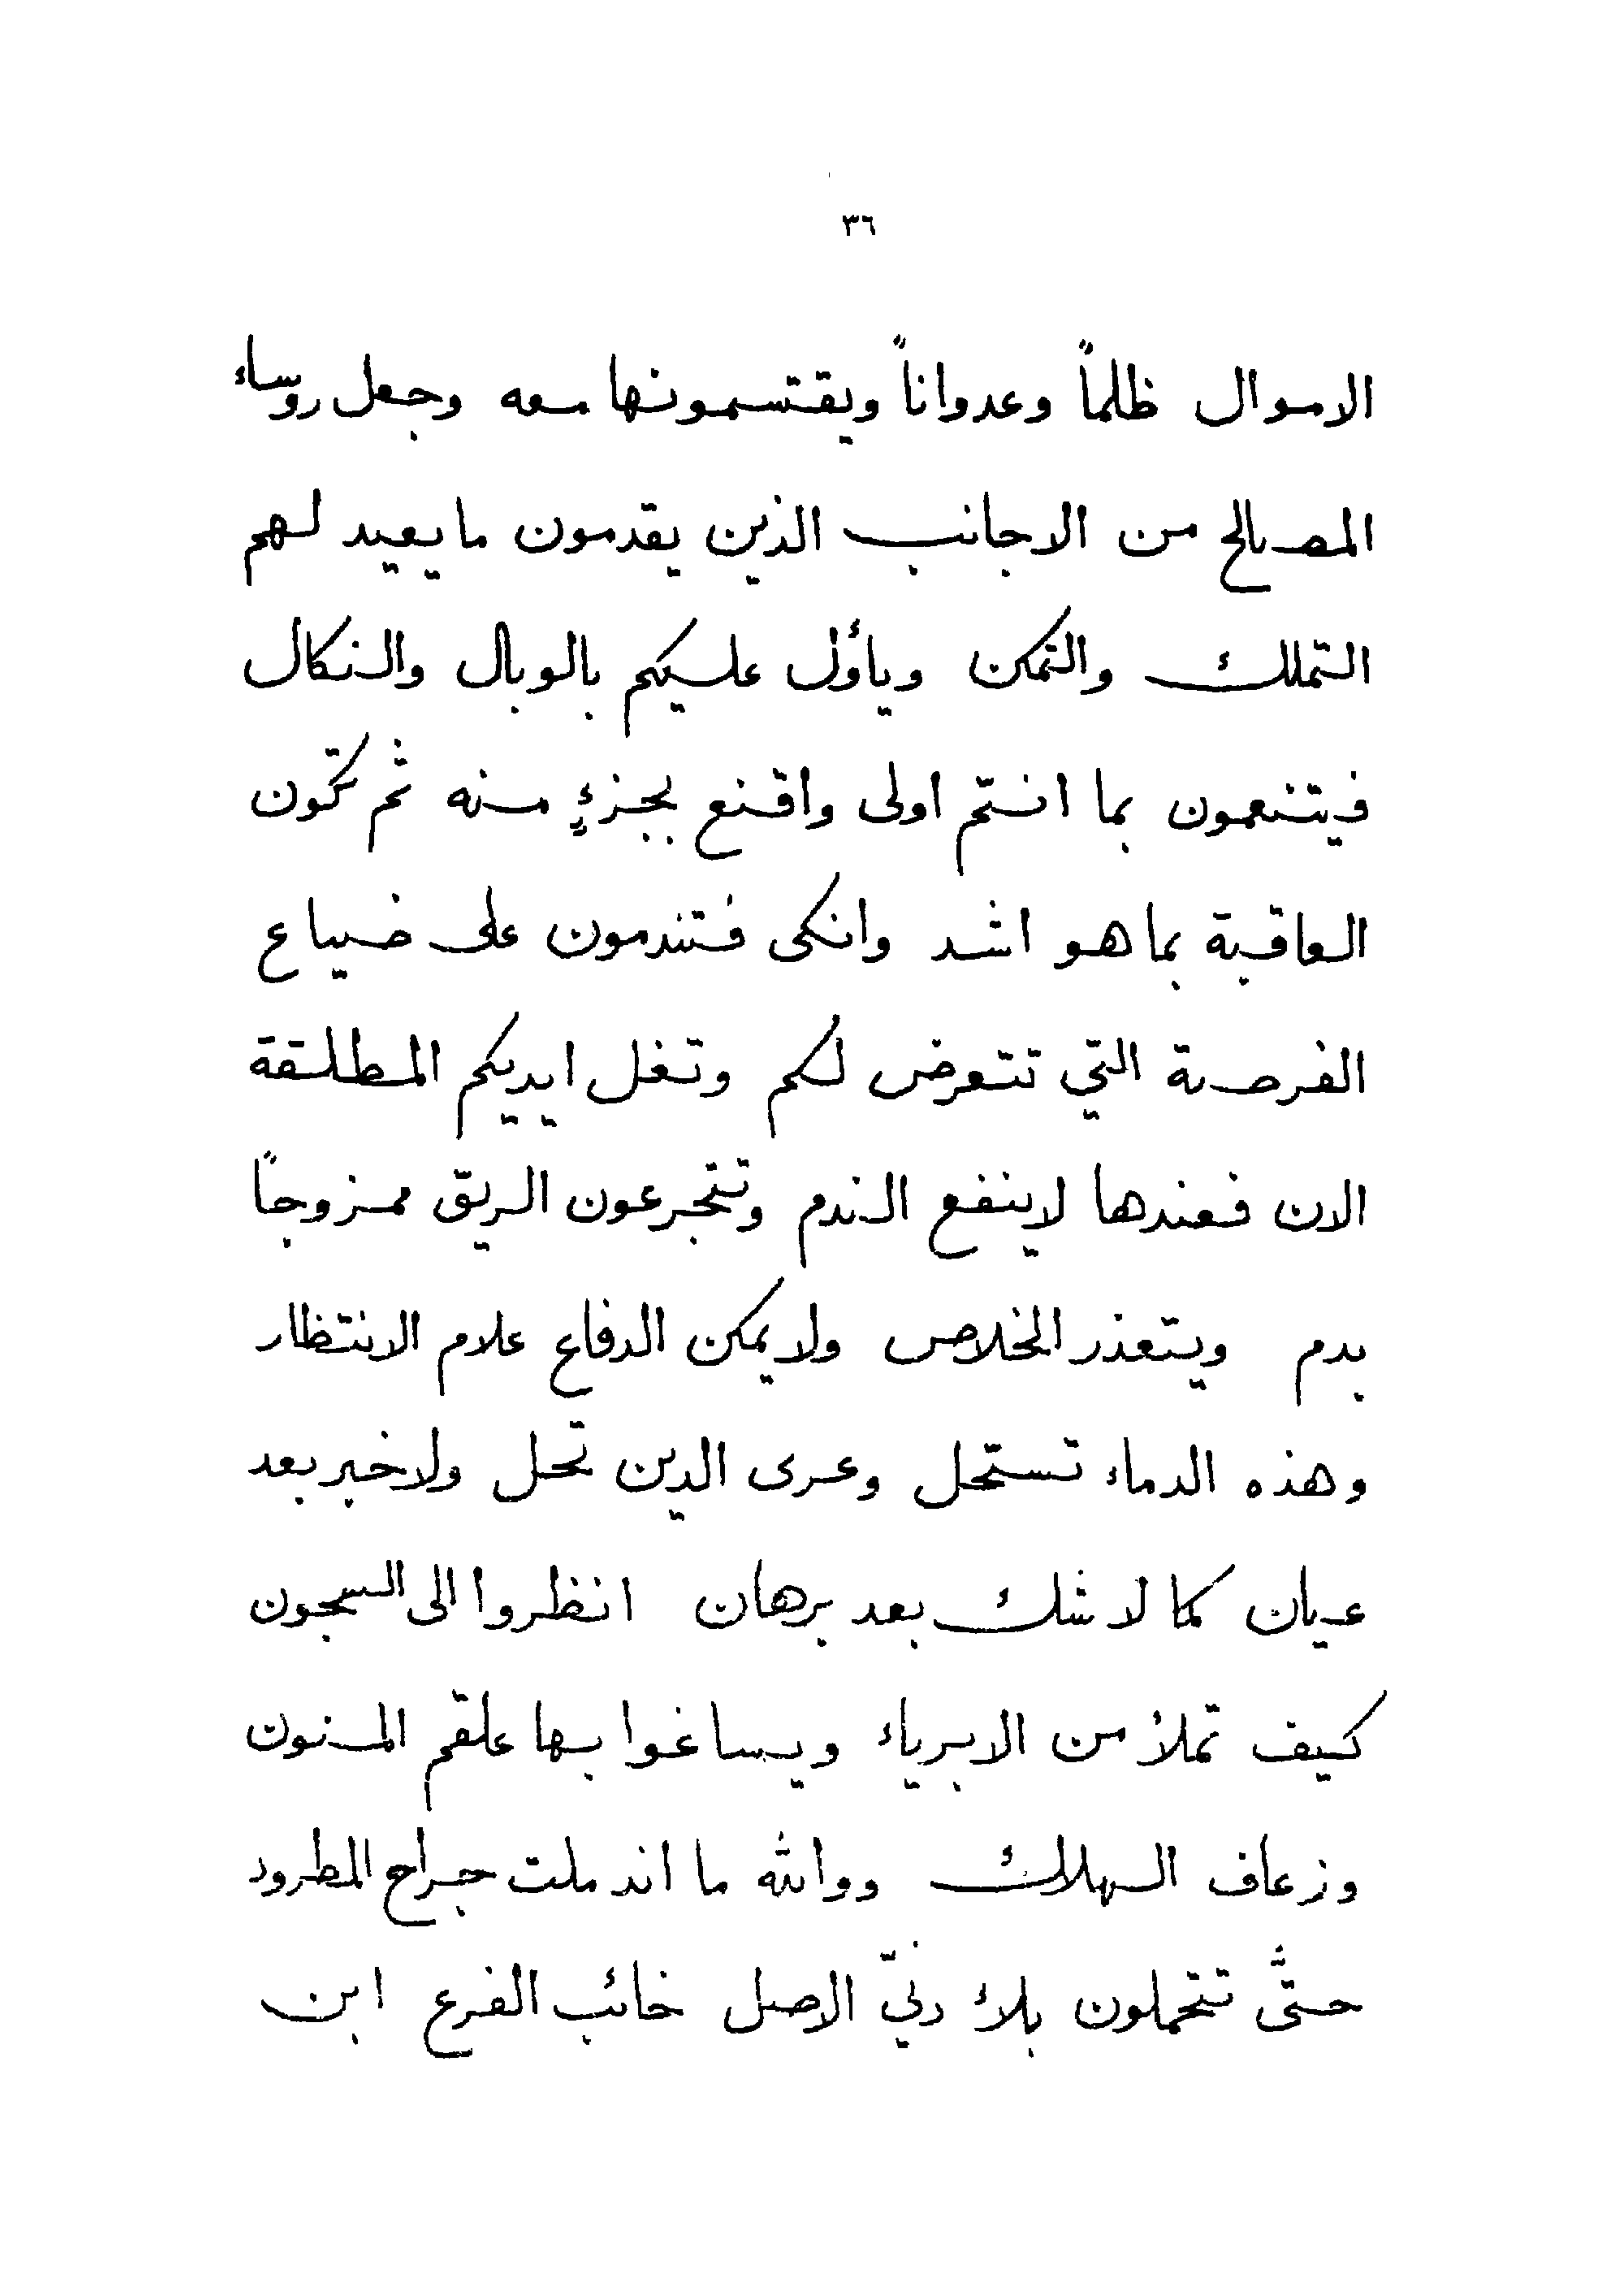 ٣٦
الاموال ظلماً وعدواناً ويقتسمونها معه وجعل روساء
المصالح من الاجانب الذين يقدمون ما يعيد لهم
التملك والتمكن ويأول عليكم بالوبال والنكال
فيتنعمون بما انتم اولى واقنع بجزءٍ منه ثم تكون
العاقبة بما هو اشد وانكى فتندمون على ضياع
الفرصة التي تتعرض لكم وتغل ايديكم المطلقة
الان فعندها لاينفع الندم وتتجرعون الريق ممزوجاً
بدم ويتعذر الخلاص ولا يمكن الدفاع علام الانتظار
وهذه الدماء تستحل وعرى الدين تحل ولاخبر بعد
عيان كما لا شك بعد برهان انظروا الى السجون
كيف تملأ من الابرياء ويساغوا بها علقم المنون
وزعاف الهلاك ووالله ما اندملت جراح المطرود
حتَّى تتحملون بلاء دنيّ الاصل خائب الفرع ابن